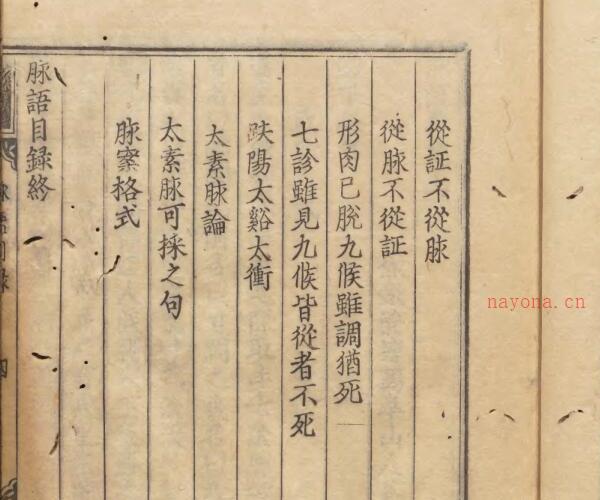 從証不從脉
從脉不從証
形肉已脫九候雖調猶死
七診雖見九候皆從者不死
趺陽太谿太衝
太素脉論
太素脉可採之句
脉案格式
脉語目録終
nayona.cn